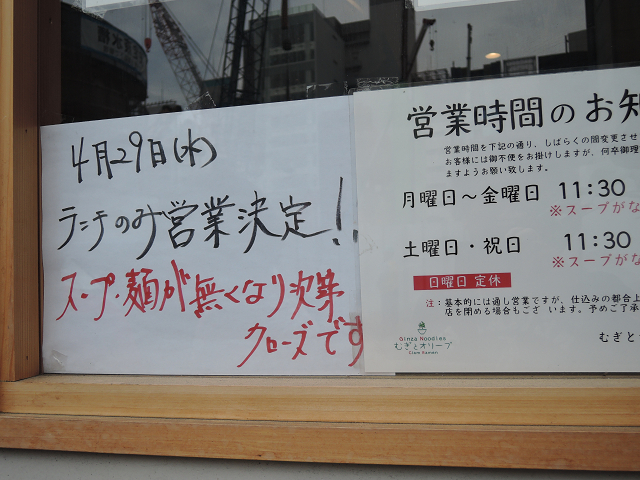 4月29日(水)
ランチのみ営業決定!!
スープ・麺が無くなり次第
クローズです
営業時間のお知
営業時間を下記の通り、しばらくの間変更させ
お客様には御不便をお掛けしますが、何卒御理
ますようお願い致します。
月曜日〜金曜日 11:30
※スープがな
土曜日・祝日 11:30
※スープがな
日曜日 定休
注:基本的には通し営業ですが、仕込みの都合上
店を閉める場合もございます。予めご了承
Ginza Noodles
むぎとオリーブ
Clam Ramen
むぎと